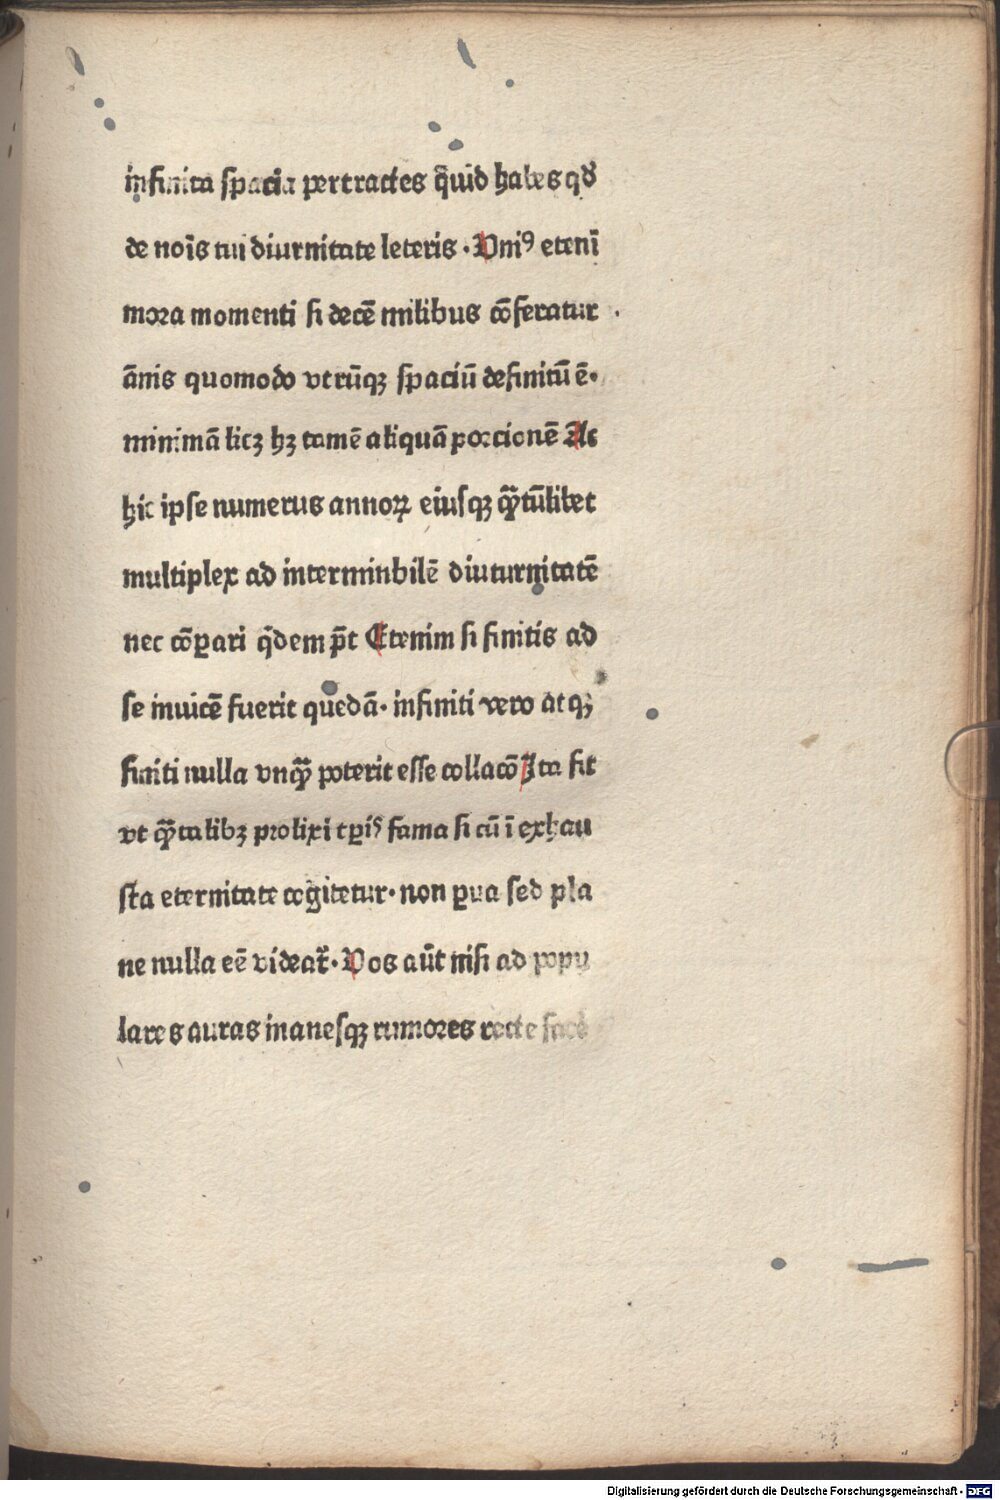 infinita spacia pertractes q̄uid habes qđ
de noīs tui diurnitate leteris · Vniꝰ etenī
moꝛa momenti si decē milibus cōferatur ·
ānis quomodo vtrūqꝫ spaciū definitū ē·
minimā licꝫ hꝫ tamē aliquā poꝛcionē At
hic ipse numerus annoꝝ eiusqꝫ qͣ̄tūlibet
multiplex ad interminbilē diuturnitatē
nec cōꝑari q̄dem p̄t Etenim si finitis ad
se inuicē fuerit quedā· infiniti vero atqꝫ
finiti nulla vnqͣ̄ poterit esse collacō Ita fit
vt qͣ̄talibꝫ prolixi tꝑis fama si cū ī exhau
sta eternitate cogitetur· non ꝑua sed pla
ne nulla eē videat᷑· Vos aūt nisi ad popu
lares auras inanesqꝫ rumoꝛes recte facē
Digitalisierung gefördert durch die Deutsche Forschungsgemeinschaft · DFG